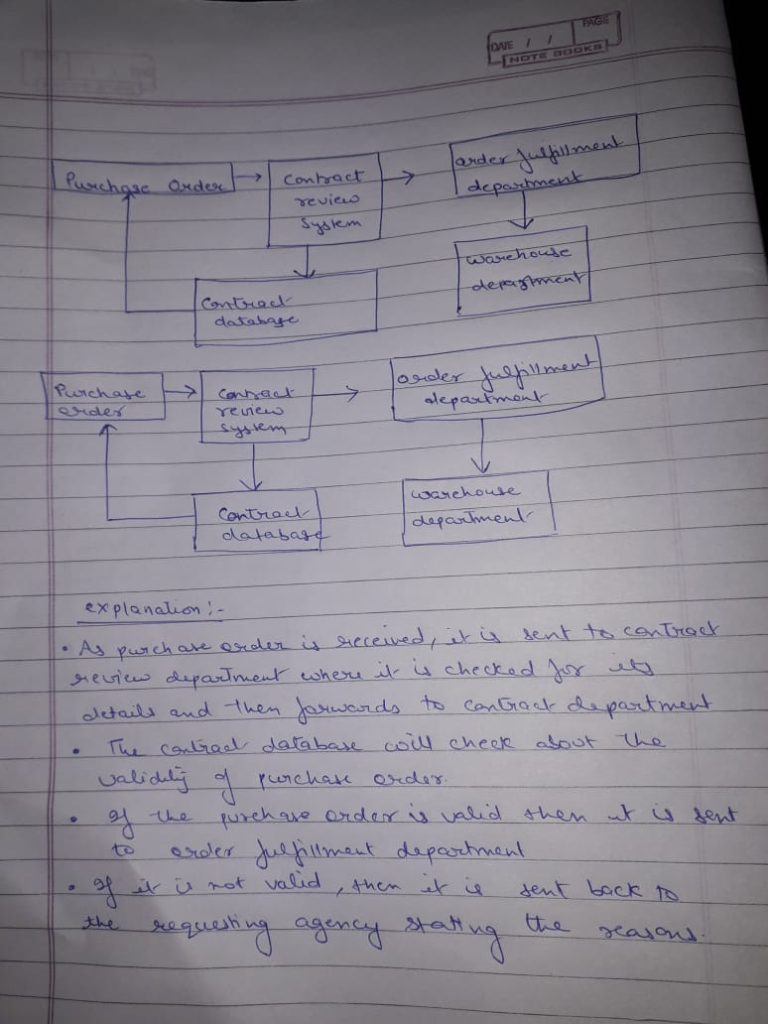 DATE / / PAGE
NOTE BOOKS
Purchase Order
Contract
review
system
order fulfillment
department
warehouse
department
Contract
database
Purchase
order
Contract
review
system
order fulfillment
department
Contract
database
warehouse
department
explanation :-
• As purchase order is received, it is sent to contract
review department where it is checked for its
details and then forwards to contract department
• The contract database will check about the
validity of purchase order.
• If the purchase order is valid then it is sent
to order fulfillment department
• If it is not valid, then it is sent back to
the requesting agency stating the reasons.